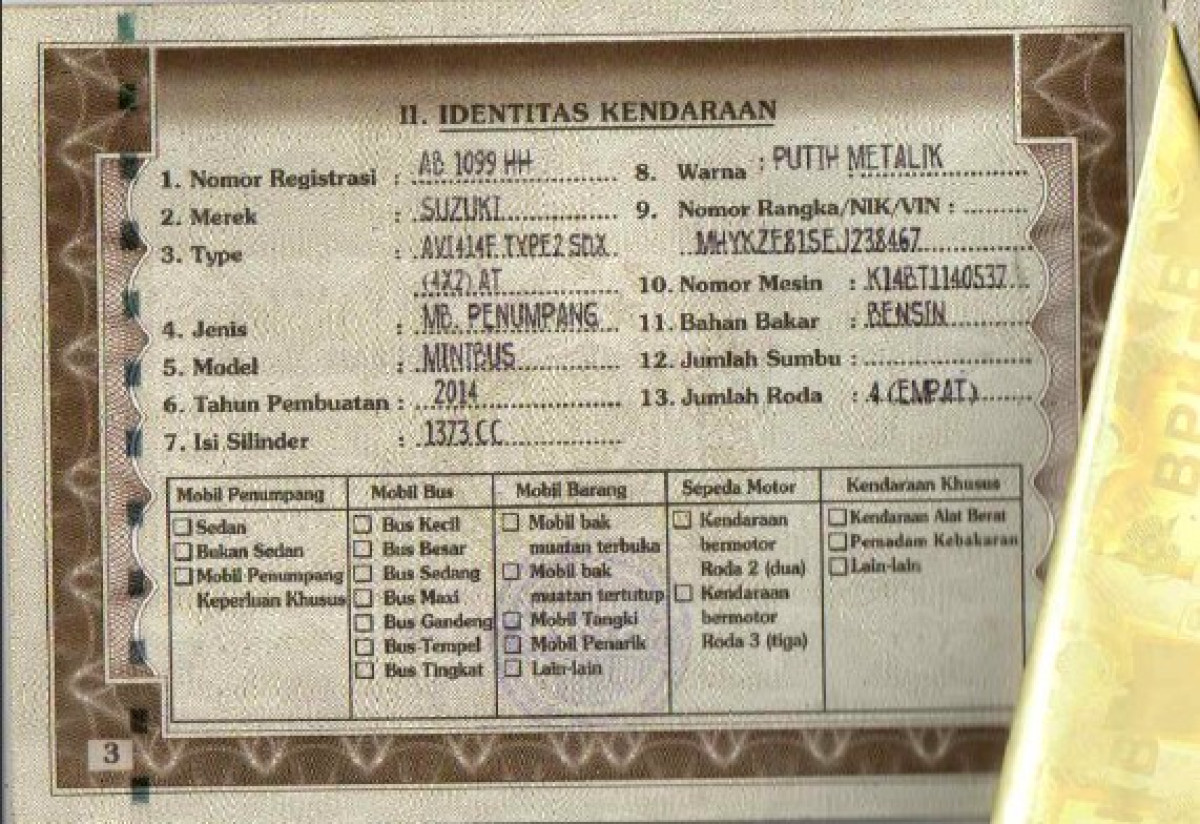 II. IDENTITAS KENDARAAN
1. Nomor Registrasi : AB 1099 HH
2. Merek : SUZUKI
3. Type : AVI414F TYPE2 SDX
(4X2) AT
4. Jenis : MB. PENUMPANG
5. Model : MINIBUS
6. Tahun Pembuatan : 2014
7. Isi Silinder : 1373 CC
8. Warna : PUTIH METALIK
9. Nomor Rangka/NIK/VIN :
MHYKZE81SEJ238467
10. Nomor Mesin : K14BT1140537
11. Bahan Bakar : BENSIN
12. Jumlah Sumbu :
13. Jumlah Roda : 4 (EMPAT)
Mobil Penumpang
Sedan
Bukan Sedan
Mobil Penumpang
Keperluan Khusus
Mobil Bus
Bus Kecil
Bus Besar
Bus Sedang
Bus Maxi
Bus Gandeng
Bus Tempel
Bus Tingkat
Mobil Barang
Mobil bak
muatan terbuka
Mobil bak
muatan tertutup
Mobil Tangki
Mobil Penarik
Lain-lain
Sepeda Motor
Kendaraan
bermotor
Roda 2 (dua)
Kendaraan
bermotor
Roda 3 (tiga)
Kendaraan Khusus
Kendaraan Alat Berat
Pemadam Kebakaran
Lain-lain
3